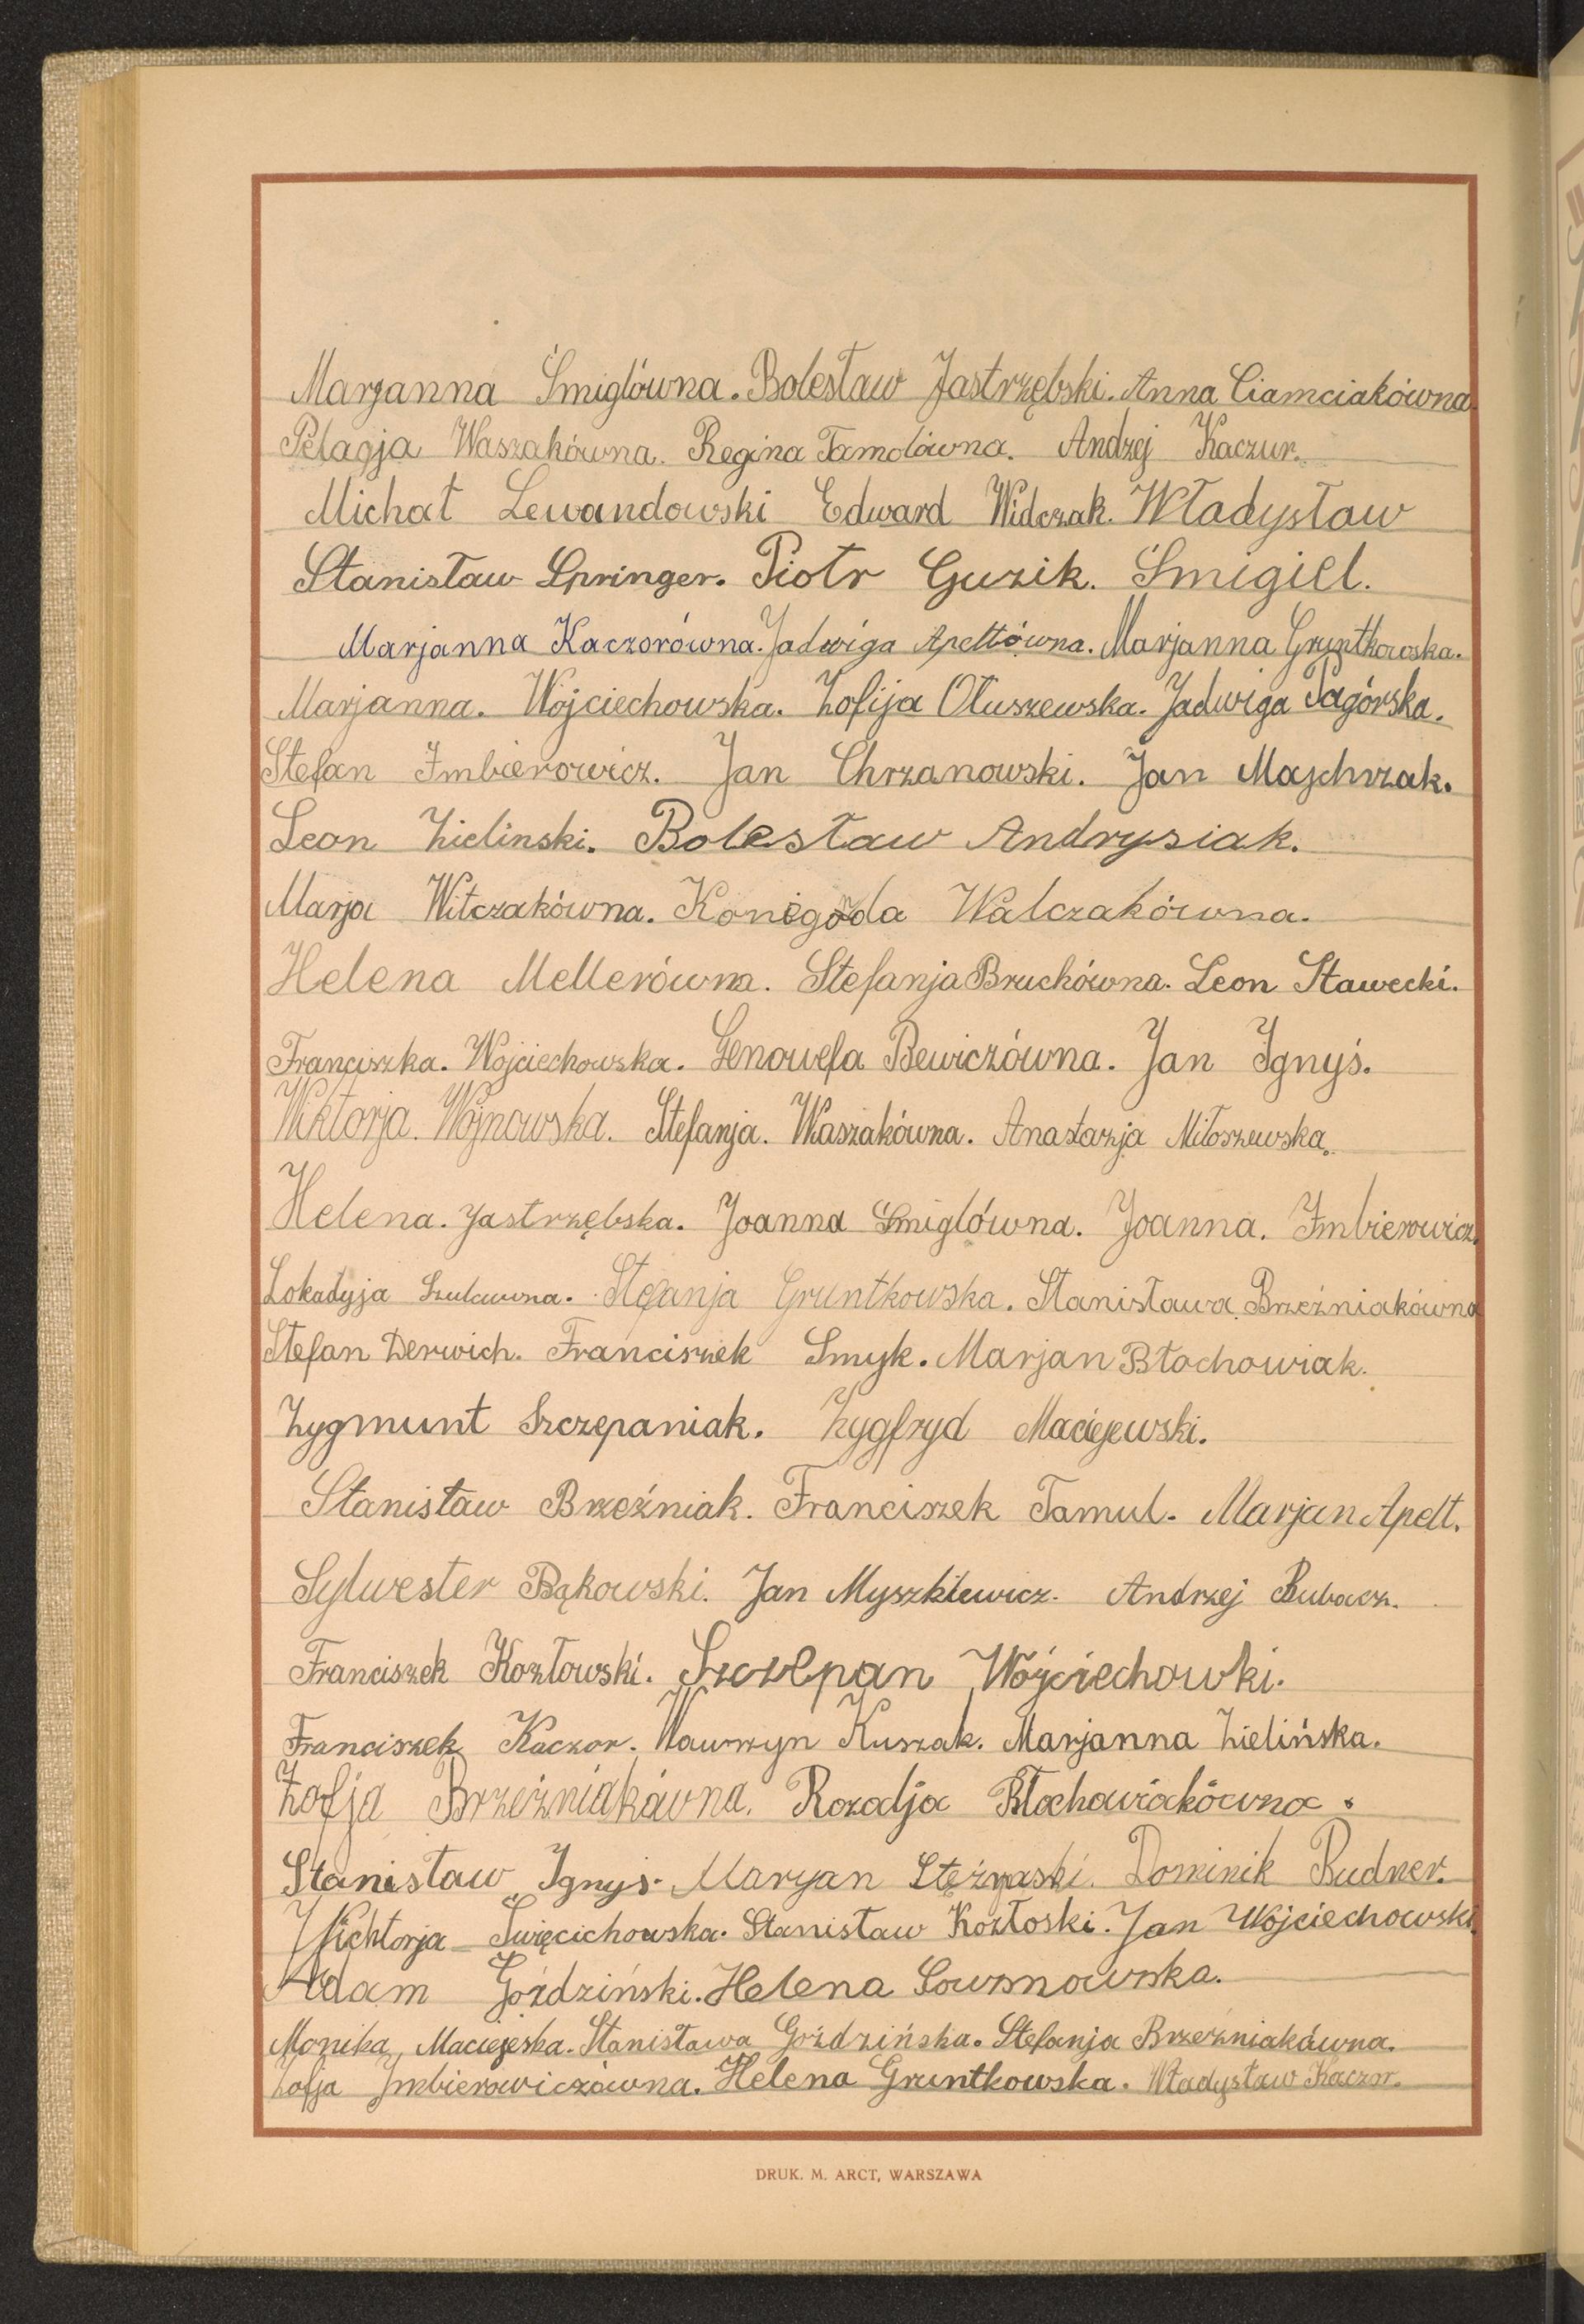 Marjanna Śmiglówna. Bolesław Jastrzębski. Anna Ciamciakówna.
Pelagja Waszakówna. Regina Tamolówna. Andrzej Kaczur.
Michał Lewandowski Edward Widczak. Władysław
Stanisław Springer. Piotr Guzik. Śmigiel.
Marjanna Kaczorówna. Jadwiga Apeltówna. Marjanna Gruntkowska.
Marjanna. Wojciechowska. Zofija Ołuszewska. Jadwiga Pagórska.
Stefan Imbierowicz. Jan Chrzanowski. Jan Majchrzak.
Leon Zielinski. Bolesław Andrysiak.
Marja Witczakówna. Walczakówna.
Helena Mellerówna. Stefanja Bruchówna. Leon Stawecki.
Franciszka. Wojciechowska. Genowefa Bewiczówna. Jan Ignyś.
Wiktorja. Wojnowska. Stefanja. Waszakówna. Anastazja Miłoszewska.
Helena. Jastrzębska. Joanna Śmiglówna. Joanna. Imbierowicz.
Lokadyja Szulcuwna. Stefanja Gruntkowska. Stanisława Brzeźniakówna
Stefan Derwich. Franciszek Smyk. Marjan Błochowiak.
Zygmunt Szczepaniak. Zygfryd Maciejewski.
Stanisław Brzeźniak. Franciszek Tamul. Marjan Apelt.
Sylwester Bąkowski. Jan Myszkiewicz. Andrzej Bubacz.
Franciszek Kozłowski. Szczepan Wójciechowki.
Franciszek Kaczor. Wawrzyn Kuszak. Marjanna Zielińska.
Zofja Brzeźniakówna. Rozalja Błochowiakówna.
Stanisław Ignyś. Maryan Dominik Budner.
Wichtorja Święcichowska. Stanisław Kozłoski. Jan Wojciechowski.
Adam Goździński. Helena Sowsnowska.
Monika Maciejeska. Stanisława Goździńska. Stefanja Brzeźniakówna.
Zofja Imbierowiczówna. Helena Gruntkowska. Władysław Kaczor.
DRUK. M. ARCT, WARSZAWA